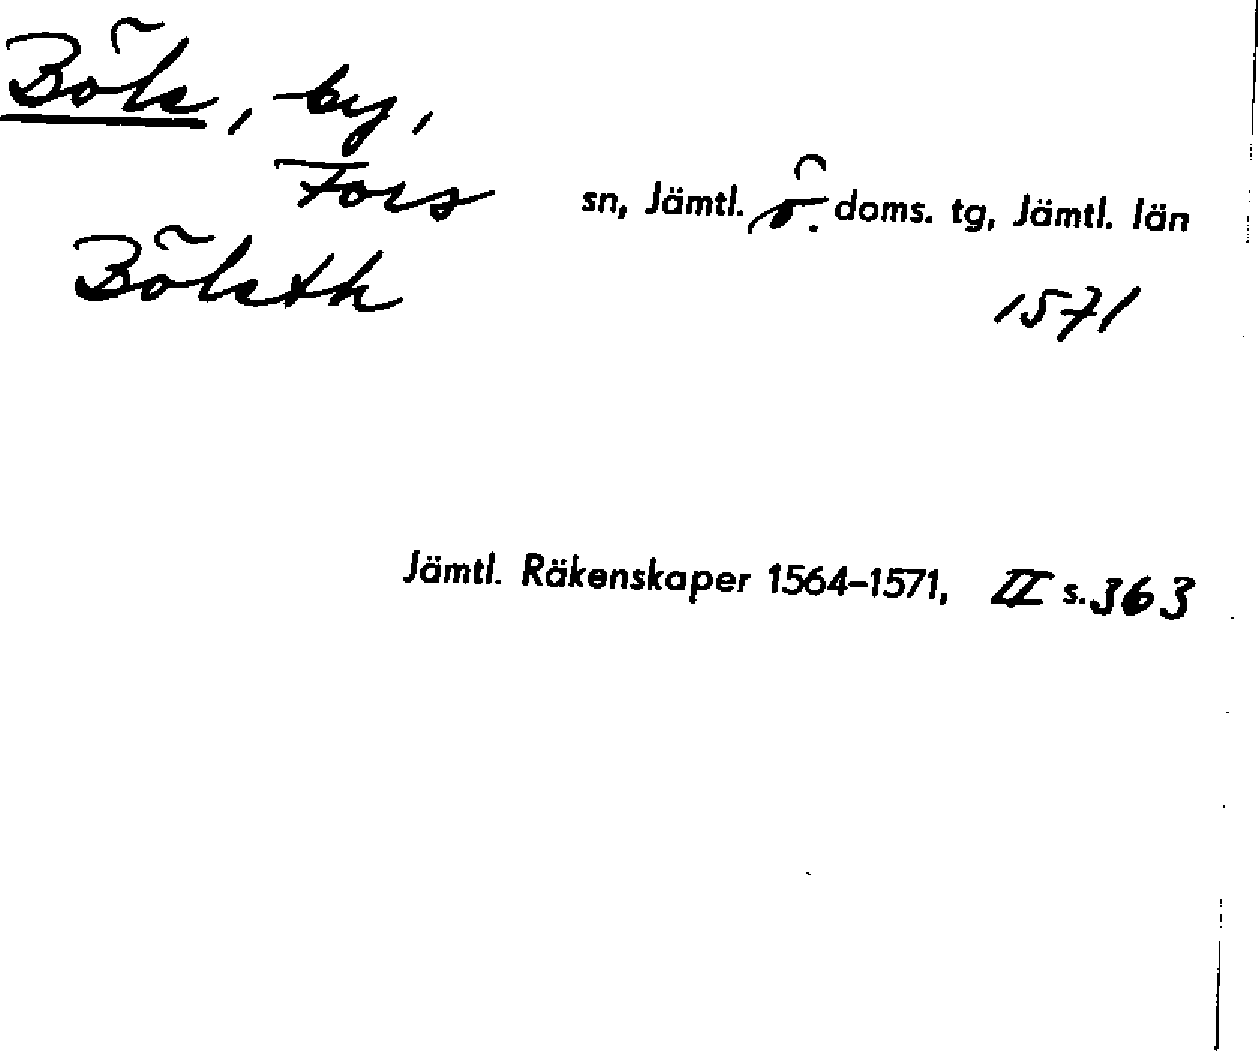 Böle, by,
Fors sn, Jämtl. ö. doms. tg, Jämtl. län
Böleth 1571
Jämtl. Räkenskaper 1564–1571, II s. 363